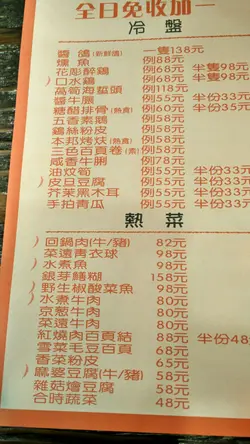 全日免收加一
冷盤
醬鴿(新鮮鴿) 一隻138元
燻魚 例88元
花彫醉鷄 例68元 半隻98元
)口水鷄 例60元 半隻98元
萵筍海蜇頭 例118元
醬牛腒 例55元 半份33元
糖醋排骨(熱食) 例60元 半份35元
五香素鵝 例58元
鷄絲粉皮 例58元
本邦烤烗(熱食) 例58元
三色百頁卷(素) 例55元
咸香牛脷 例78元
油炆筍 例55元 半份33元
)皮旦豆腐 例55元 半份33元
芥茉黑木耳 例55元 半份33元
手拍青瓜 例55元 半份33元
熱菜
)回鍋肉(牛/豬) 82元
菜遠青衣球 98元
)水煮魚 98元
銀芽鱔糊 158元
)野生椒酸菜魚 98元
)水煮牛肉 80元
京葱牛肉 80元
菜遠牛肉 80元
紅燒肉百頁結 88元 半份48元
雪菜毛豆百頁 68元
香菜粉皮 65元
)麻婆豆腐(牛/豬) 58元
雜菇燴豆腐 58元
合時蔬菜 48元